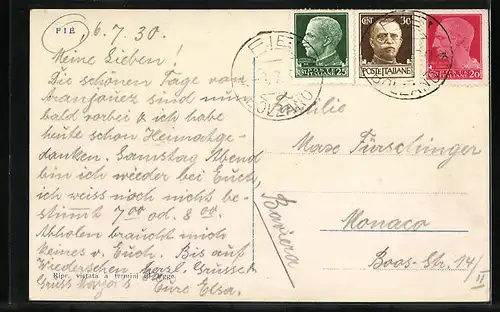 FIÈ
6.7.30.
Meine Lieben!
Die schönen Tage von
Aranjouez sind nun
bald vorbei & ich habe
heute schon Heimatge-
danken. Samstag Abend
bin ich wieder bei Euch
ich weiss noch nicht be-
stimmt 7.00 od. 8.00
Abholen braucht mich
keines v. Euch. Bis auf
Wiedersehen herzl. Grüsse
Gruss Eure Elsa.
Ripr. vietata a termini di legge.
POSTE ITALIANE 25
CENT 30 POSTE ITALIANE
20
FIE
BOLZANO
BOLZANO
Familie
Max Fürschinger
Monaco
Boos-Str. 14/II
Baviera